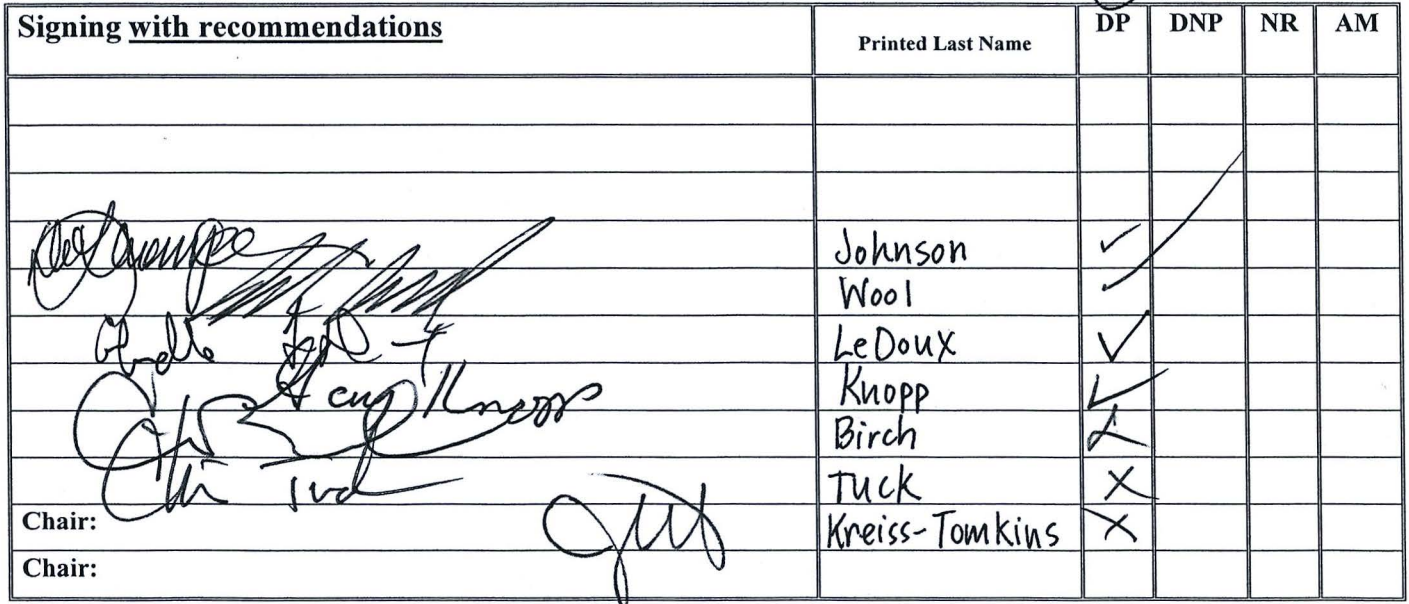 Signing with recommendations Printed Last Name DP DNP NR AM
Johnson
Wool
LeDoux
Knopp
Birch
Tuck
Chair: Kreiss-Tomkins
Chair: